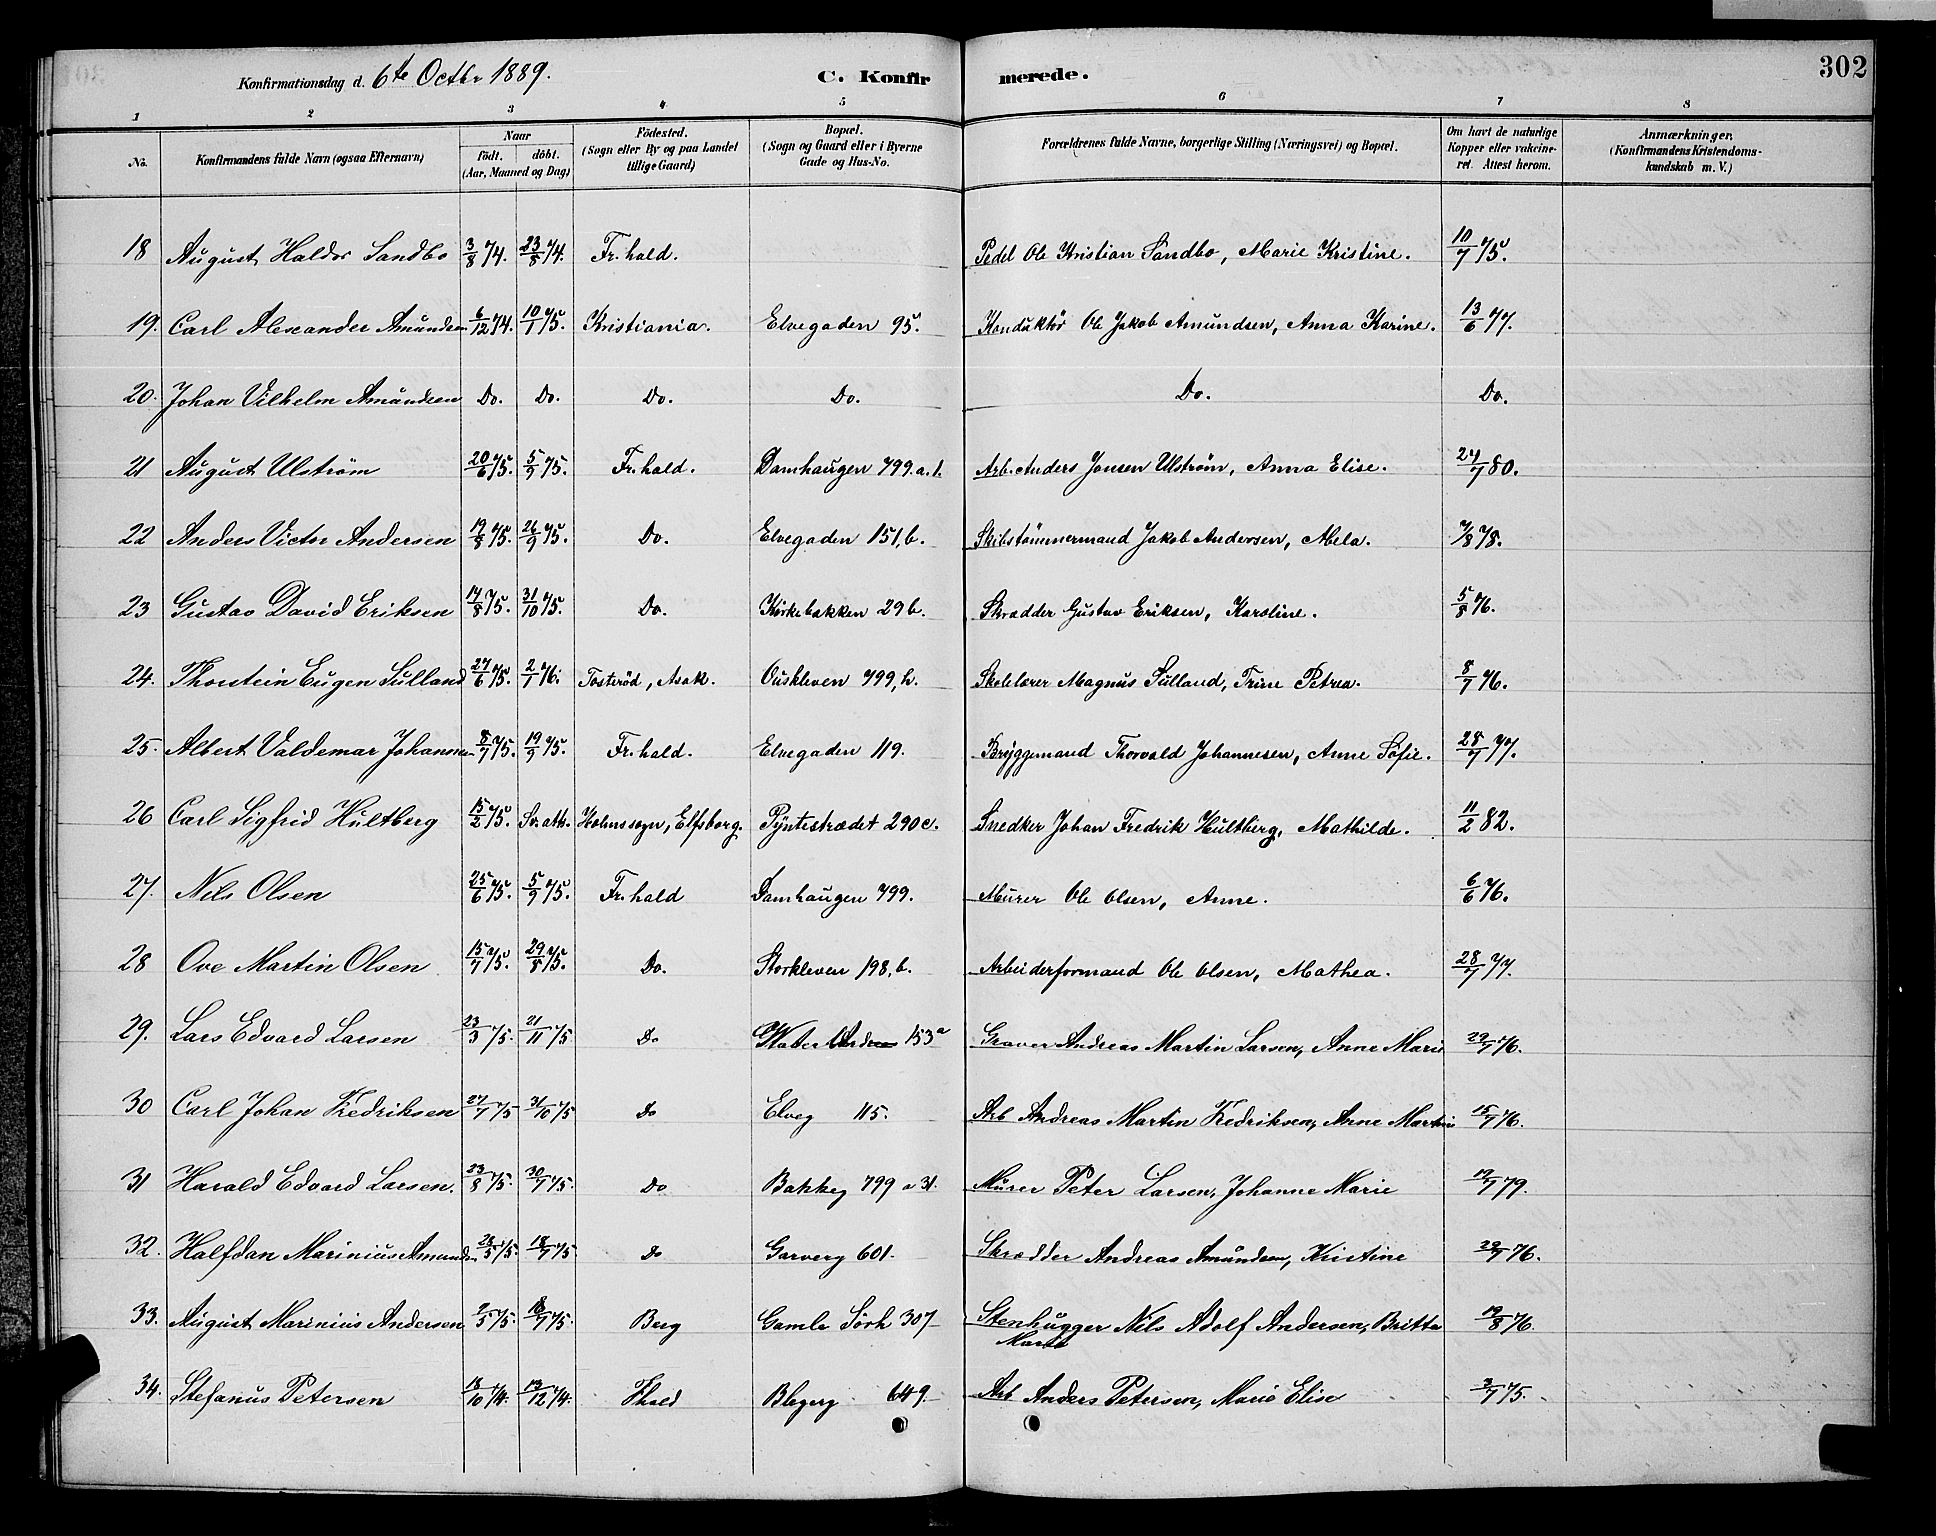 302
Konfirmationsdag d. 6te Octbr 1889. C. Konfirmerede.
1 2 3 4 5 6 7 8
No. Konfirmandens fulde Navn (ogsaa Efternavn) Naar födt. döbt. (Aar, Maaned og Dag) Födested. (Sogn eller By og paa Landet tillige Gaard) Bopæl. (Sogn og Gaard eller i Byerne Gade og Hus-No. Forældrenes fulde Navne, borgerlige Stilling (Næringsvei) og Bopæl. Om havt de naturlige Kopper eller vakcineret. Attest herom. Anmærkninger. (Konfirmandens Kristendomskundskab m. V.)
18 August Haldor Sandbo 3/8 74. 23/8 74. Fr.hald. Pedel Ole Kristian Sandbo, Marie Kristine. 10/7 75.
19. Carl Alexander Amundsen 6/12 74. 10/1 75. Kristiania. Elvegaden 95. Konduktör Ole Jakob Amundsen, Anna Karine. 13/6 77.
20. Johan Vilhelm Amundsen Do. Do. Do. Do. Do. Do.
21 August Ulström 20/6 75. 5/9 75. Fr.hald. Damhaugen 799.a.1. Arb. Anders Jonsen Ulström, Anna Elise. 27/7 80.
22 Anders Victor Andersen 19/8 75. 26/9 75. Do. Elvegaden 151,b. Skibstömmermand Jakob Andersen, Mela. 7/8 78.
23 Gustav David Eriksen 17/8 75. 31/10 75. Do. Kirkebakken 29 b. Skrædder Gustav Eriksen, Karoline. 5/8 76.
24. Thorstein Eugen Sulland 27/6 75. 2/1 76. Tosteröd, Asak. Ouskleven 799,h. Skolelærer Magnus Sulland, Trine Petrea. 8/7 76.
25. Albert Valdemar Johannesen 8/7 75. 19/9 75. Fr.hald. Elvegaden 119. Bryggemand Thorvald Johannesen, Anne Sofie. 28/7 77.
26 Carl Sigfrid Hultberg 15/2 75. Sv. att. Holmssogn, Elfsborg. Pyntestrædet 290c. Snedker Johan Fredrik Hultberg, Mathilde. 11/2 82.
27. Nils Olsen 25/6 75. 5/9 75. Fr.hald Damhaugen 799. Murer Ole Olsen, Anne. 6/6 76.
28 Ove Martin Olsen 15/7 75. 29/8 75. Do. Storkleven 198,b. Arbeiderformand Ole Olsen, Mathea. 28/7 77.
29. Lars Edvard Larsen 23/3 75. 21/11 75 Do 153a Graver Andreas Martin Larsen, Anne Marie 29/7 76.
30 Carl Johan Fredriksen 27/7 75 31/10 75 Do Elveg 115. Arb Andreas Martin Fredriksen, Anne Martine 15/7 76.
31 Harald Edvard Larsen. 23/8 75. 75. Do Bakkeg 799 a 31. Murer Peter Larsen, Johanne Marie 79.
32. Halfdan Marinius Amundsen 28/5 75. 75 Do Garverg 601. Skrædder Andreas Amundsen, Kristine 76.
33. August Marinius Andersen 2/5 75. 75. Berg Gamle Sörh 307 Stenhugger Nils Adolf Andersen, Britta
Maria 19/8 76.
34. Stefanus Petersen 18/10 74. 13/12 74. Fhald Blegerg 649. Arb Anders Petersen, Marie Elise 3/7 75.